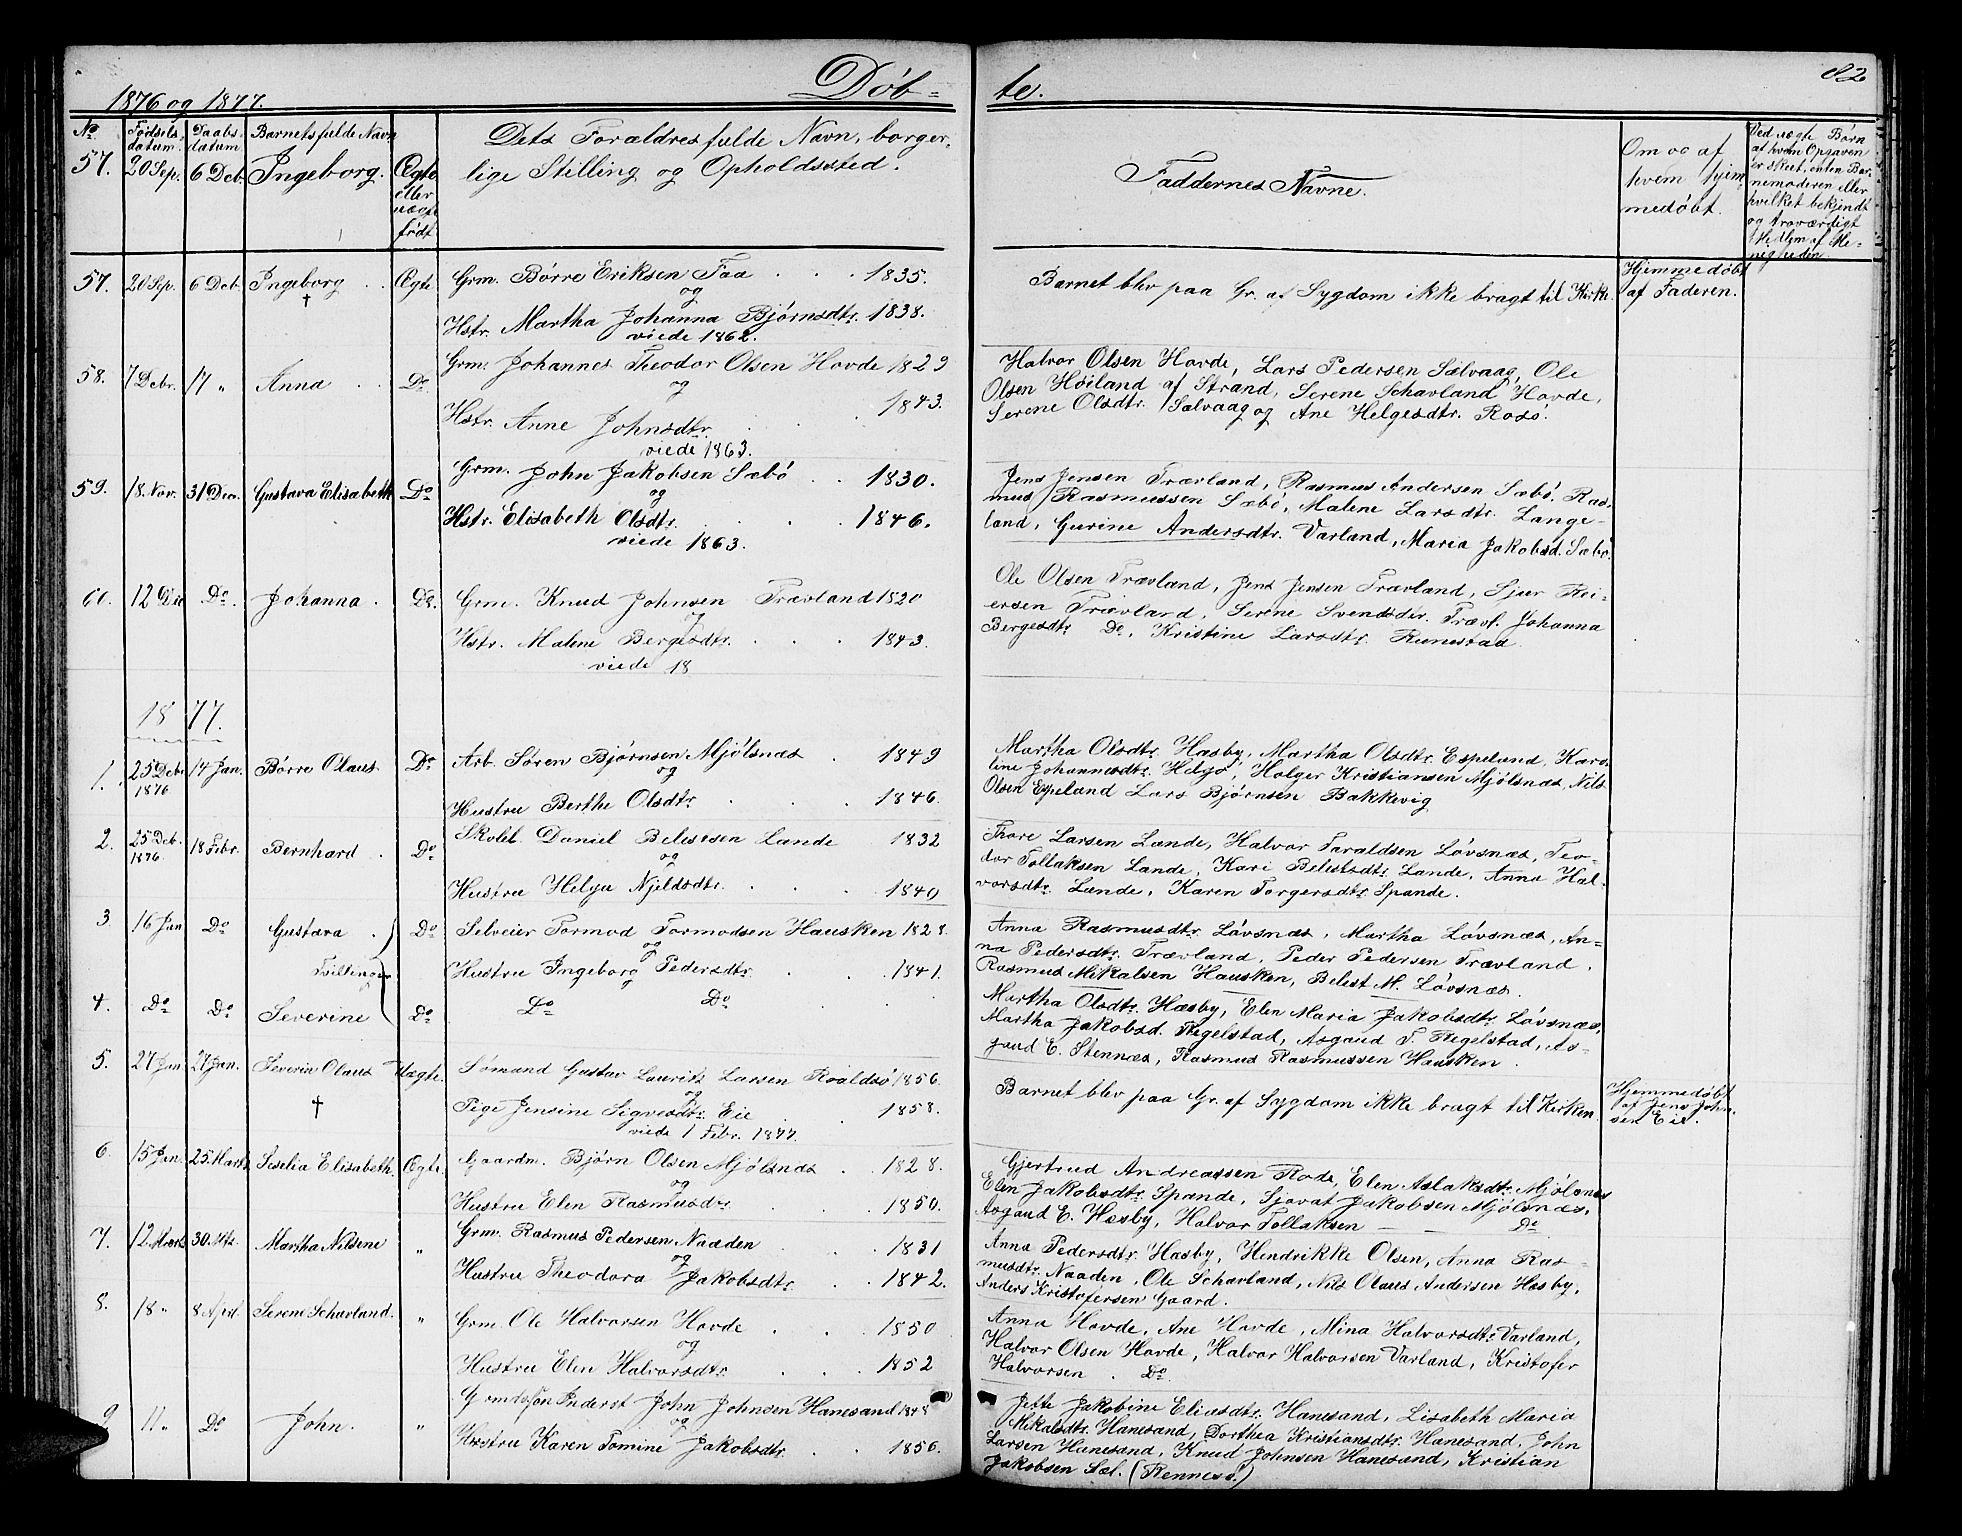 82
1876 og 1877.
Døb-
te.
No
Fødsels-
datum.
Daabs-
datum
Barnets fulde Navn
Ægte
eller
uægte
født
Dets Forældres fulde Navn, borger-
lige Stilling og Opholdssted.
Faddernes Navne.
Om og af
hvem hjem-
medøbt.
Ved uægte Børn
at hvem Opgaven
er skeet, enten Bar-
nemoderen eller
hvilket bekjendt
og troværdigt
Medlem af Me-
nigheden.
57. 20 Sep. 6 Deb. Ingeborg.
57. 20 Sep. 6 Deb. Ingeborg . . Ægte Grm. Børre Eriksen Faa . . . 1835.
†
og
Hstr. Martha Johanna Bjørnsdtr. 1838.
viede 1862.
Barnet blev paa Gr. af Sygdom ikke bragt til Kirke.
Hjemmedøbt
af Faderen.
58. 7 Debr. 17 „ Anna . . Do Grm. Johannes Theodor Olsen Hovde 1829
og
Hstr. Anne Johnsdtr. . . 1843.
viede 1863.
Halvor Olsen Hovde, Lars Pedersen Sælvaag, Ole
Olsen Høiland af Strand, Serene Schavland Hovde,
Serene Olsdtr. Salvaag og Ane Helgesdtr. Rosø.
59. 18. Nov. 31 Dec. Gustava Elisabeth Do Grm. John Jakobsen Sæbö . . 1830.
og
Hstr. Elisabeth Olsdtr. . . . 1846.
viede 1863.
Jens Jensen Trævland, Rasmus Andersen Sæbö, Ras-
mus Rasmussen Sæbö, Malene Larsdtr. Lange-
land, Gurine Andersdtr. Varland, Maria Jakobsd. Sæbö.
60. 12 Dec Do. Johanna . Do. Grm. Knud Johnsen Trævland 1820
og
Hstr. Malene Bergesdtr. . . 1843.
viede 18
Ole Olsen Trævland, Jens Jensen Trævland, Sjur Rei-
ersen Trævland, Serene Svendsdtr. Trævl. Johanna
Bergesdtr Do, Kristine Larsdtr. Runestad
1877.
1. 25 Deb. 14 Jan. Børre Olaus Do Arb. Søren Bjørnsen Mjølsnæs . 1849
1876
og
Hustru Berthe Olsdtr . . . 1846.
Martha Olsdtr. Hæsby, Martha Olsdtr. Espeland, Karo-
line Johannesdtr. Helgø, Holger Kristiansen Mjølsnæs, Nils
Olsen Espeland Lars Bjørnsen Bakkevig
2. 25 Deb. 18 Febr. Bernhard . Do Skoleh. Daniel Belesesen Lande 1832
1876.
og
Hustru Helga Njeldsdtr. . . . 1840
Thore Larsen Lande, Halvor Taraldsen Løvsnæs, Teo-
dor Tollaksen Lande, Kari Belestsdtr Lande, Anna Hal-
vorsdtr. Lande, Karen Torgersdtr. Spande.
3 16 Jan Do Gustava . Do Selveier Tormod Tormodsen Hausken 1828.
Tvillinger
og
Hustru Ingeborg Pedersdtr. . . 1841.
Anna Rasmusdtr. Løvsnæs, Martha Løvsnæs, An-
na Pedersdtr. Trævland, Peder Pedersen Trævland,
Rasmus Mikalsen Hausken, Belest M. Løvsnæs.
4. Do Do Severine Do Do Do
Martha Olsdtr. Hæsby, Elen Maria Jakobsdtr. Løvsnæs,
Martha Jakobsd. Regelstad, Asgaud T. Regelstad, As-
gaud E. Stennæs, Rasmus Rasmussen Hausken.
5. 27 Jan 27 Jan. Severin Olaus Uægte. Sømand Gustav Laurits Larsen Roaldsö 1856.
†
og
Pige Jensine Sigvesdtr. Eie . . 1858.
viede 1 Febr. 1877.
Barnet blev paa Gr. af Sygdom ikke bragt til Kirken.
Hjemmedøbt
af Jens John-
sen Eie.
6. 15 Jan. 25. Marts Seselia Elisabeth. Ægte. Gaardm. Bjørn Olsen Mjølsnæs . 1828.
og
Hustru Elen Rasmusdtr . . 1850.
Gjertrud Andreassen Rode, Elen Aslaksdtr. Mjølsnæs
Elen Jakobsdtr. Spande, Sjovat Jakobsen Mjølsnæs,
Asgaud E. Hæsby, Halvor Tollaksen — Do
7. 12. Marts 30. Mts. Martha Nilsine „ Grm. Rasmus Pedersen Naaden . 1831
og
Hustru Theodora Jakobsdtr. . . 1842.
Anna Pedersdtr. Hæsby, Hendrikke Olsen, Anna Ras-
musdtr. Naaden, Ole Schavland, Nils Olaus Andersen Hæsby,
Anders Kristofersen Gaard.
8. 18 „ 8 April. Serene Schavland. „ Grm. Ole Halvorsen Hovde . . . 1850
og
Hustru Elen Halvorsdtr . . . 1852
Anna Hovde, Ane Hovde, Mina Halvorsdtr. Varland,
Halvor Olsen Hovde, Halvor Halvorsen Varland, Kristofer
Halvorsen . Do.
9 11 „ Do John. „ Grmdssøn Inderst John Johnsen Hanesand 1848
og
Hustru Karen Tomine Jakobsdtr. . . 1856.
Jette Jakobine Eliasdtr. Hanesand, Lisabeth Maria
Mikalsdtr. Hanesand, Dorthea Kristiansdtr. Hanesand, John
Larsen Hanesand, Knud Johnsen Hanesand, Kristian
Jakobsen Sæl. (Rennesö.)